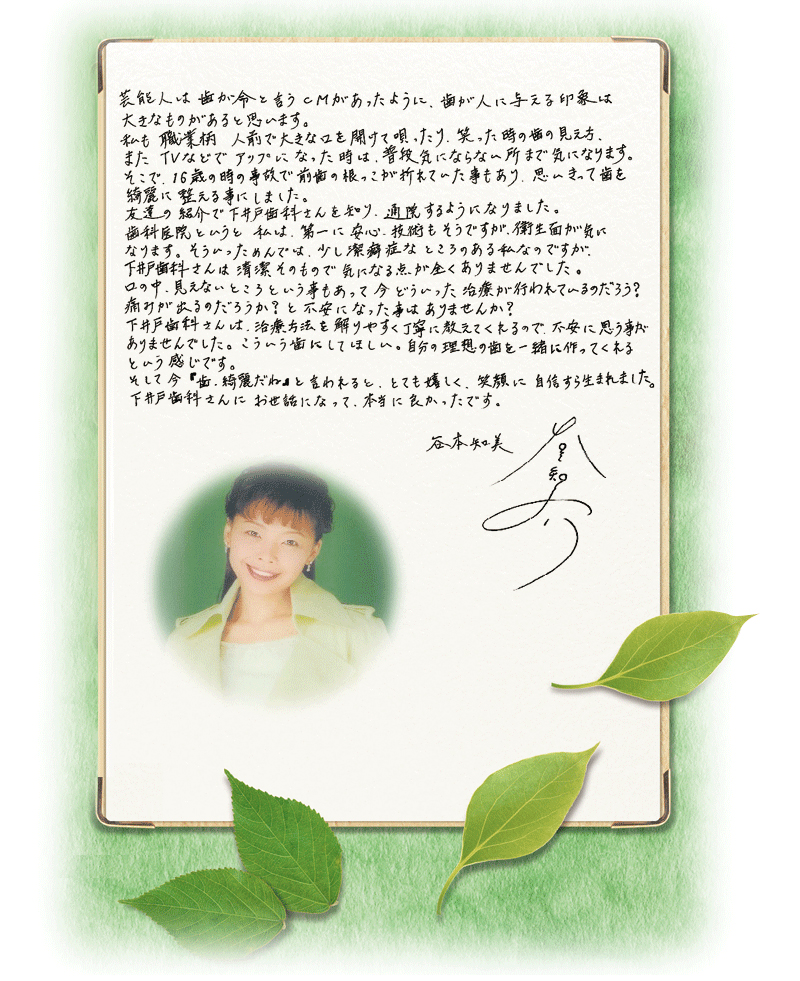 芸能人は歯が命と言うCMがあったように、歯が人に与える印象は
大きなものがあると思います。
私も職業柄 人前で大きな口を開けて唄ったり、笑った時の歯の見え方、
また TVなどでアップになった時は、普段気にならない所まで気になります。
そこで、16歳の時の事故で前歯の根っこが折れていた事もあり、思いきって歯を
綺麗に整える事にしました。
友達の紹介で下井戸歯科さんを知り、通院するようになりました。
歯科医院というと 私は、第一に安心、技術もそうですが、衛生面が気に
なります。そういっためんでは、少し潔癖症なところのある私なのですが、
下井戸歯科さんは清潔そのもので気になる点が全くありませんでした。
口の中、見えないところという事もあって今どういった治療が行われているのだろう?
痛みが出るのだろうか?と不安になった事はありませんか?
下井戸歯科さんは、治療方法を解りやすく丁寧に教えてくれるので、不安に思う事が
ありませんでした。こういう歯にしてほしい。自分の理想の歯を一緒に作ってくれる
という感じです。
そして今『歯、綺麗だね』と言われると、とても嬉しく、笑顔に自信すら生まれました。
下井戸歯科さんにお世話になって、本当に良かったです。
谷本知美